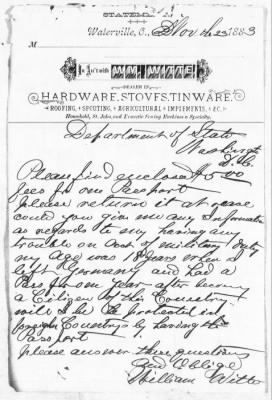 STATEMENT.
Waterville, O., Nov 23 1883
M
In Acc't with WM. WITTE
DEALER IN
HARDWARE, STOVES, TINWARE,
ROOFING, SPOUTING, AGRICULTURAL IMPLEMENTS, &C.
Household, St. John, and Domestic Sewing Machines a Specialty.
Department of State
Washington
D.C.
Please find enclosed $5 00
fees for one Passport
please return it at
could you give me any Information
as regards to my having any
trouble on Acct of military Duty
my Age was 18 years when I
left Germany and had a
Pass for one Year after
a Citizen of this Country
will I be protected in
foreign Countrys by having the
Pass port
please answer these questions
and Oblige
William Witte